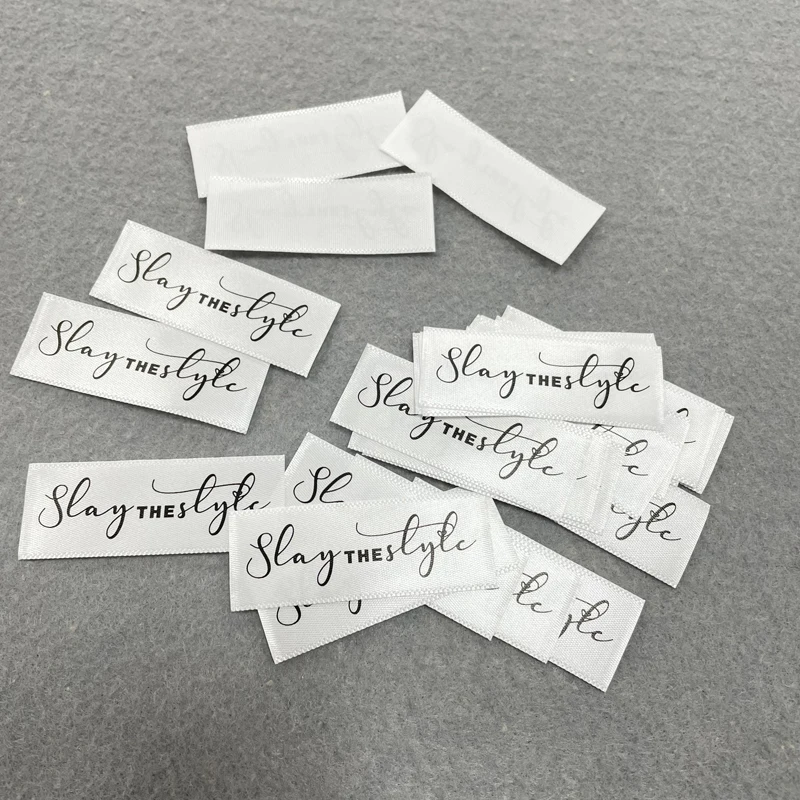 Slay THE style
Slay THE style
Slay THE style
Slay THE style
Slay THE style
Sl
Slay THE style
yle
le
style